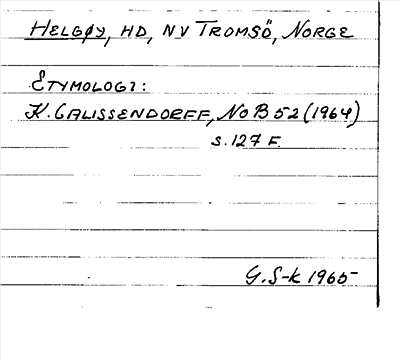 HELGØY, HD, NV TROMSÖ, NORGE
ETYMOLOGI:
K. CALISSENDORFF, NoB 52 (1964)
s. 127 F.
G. S-k 1965